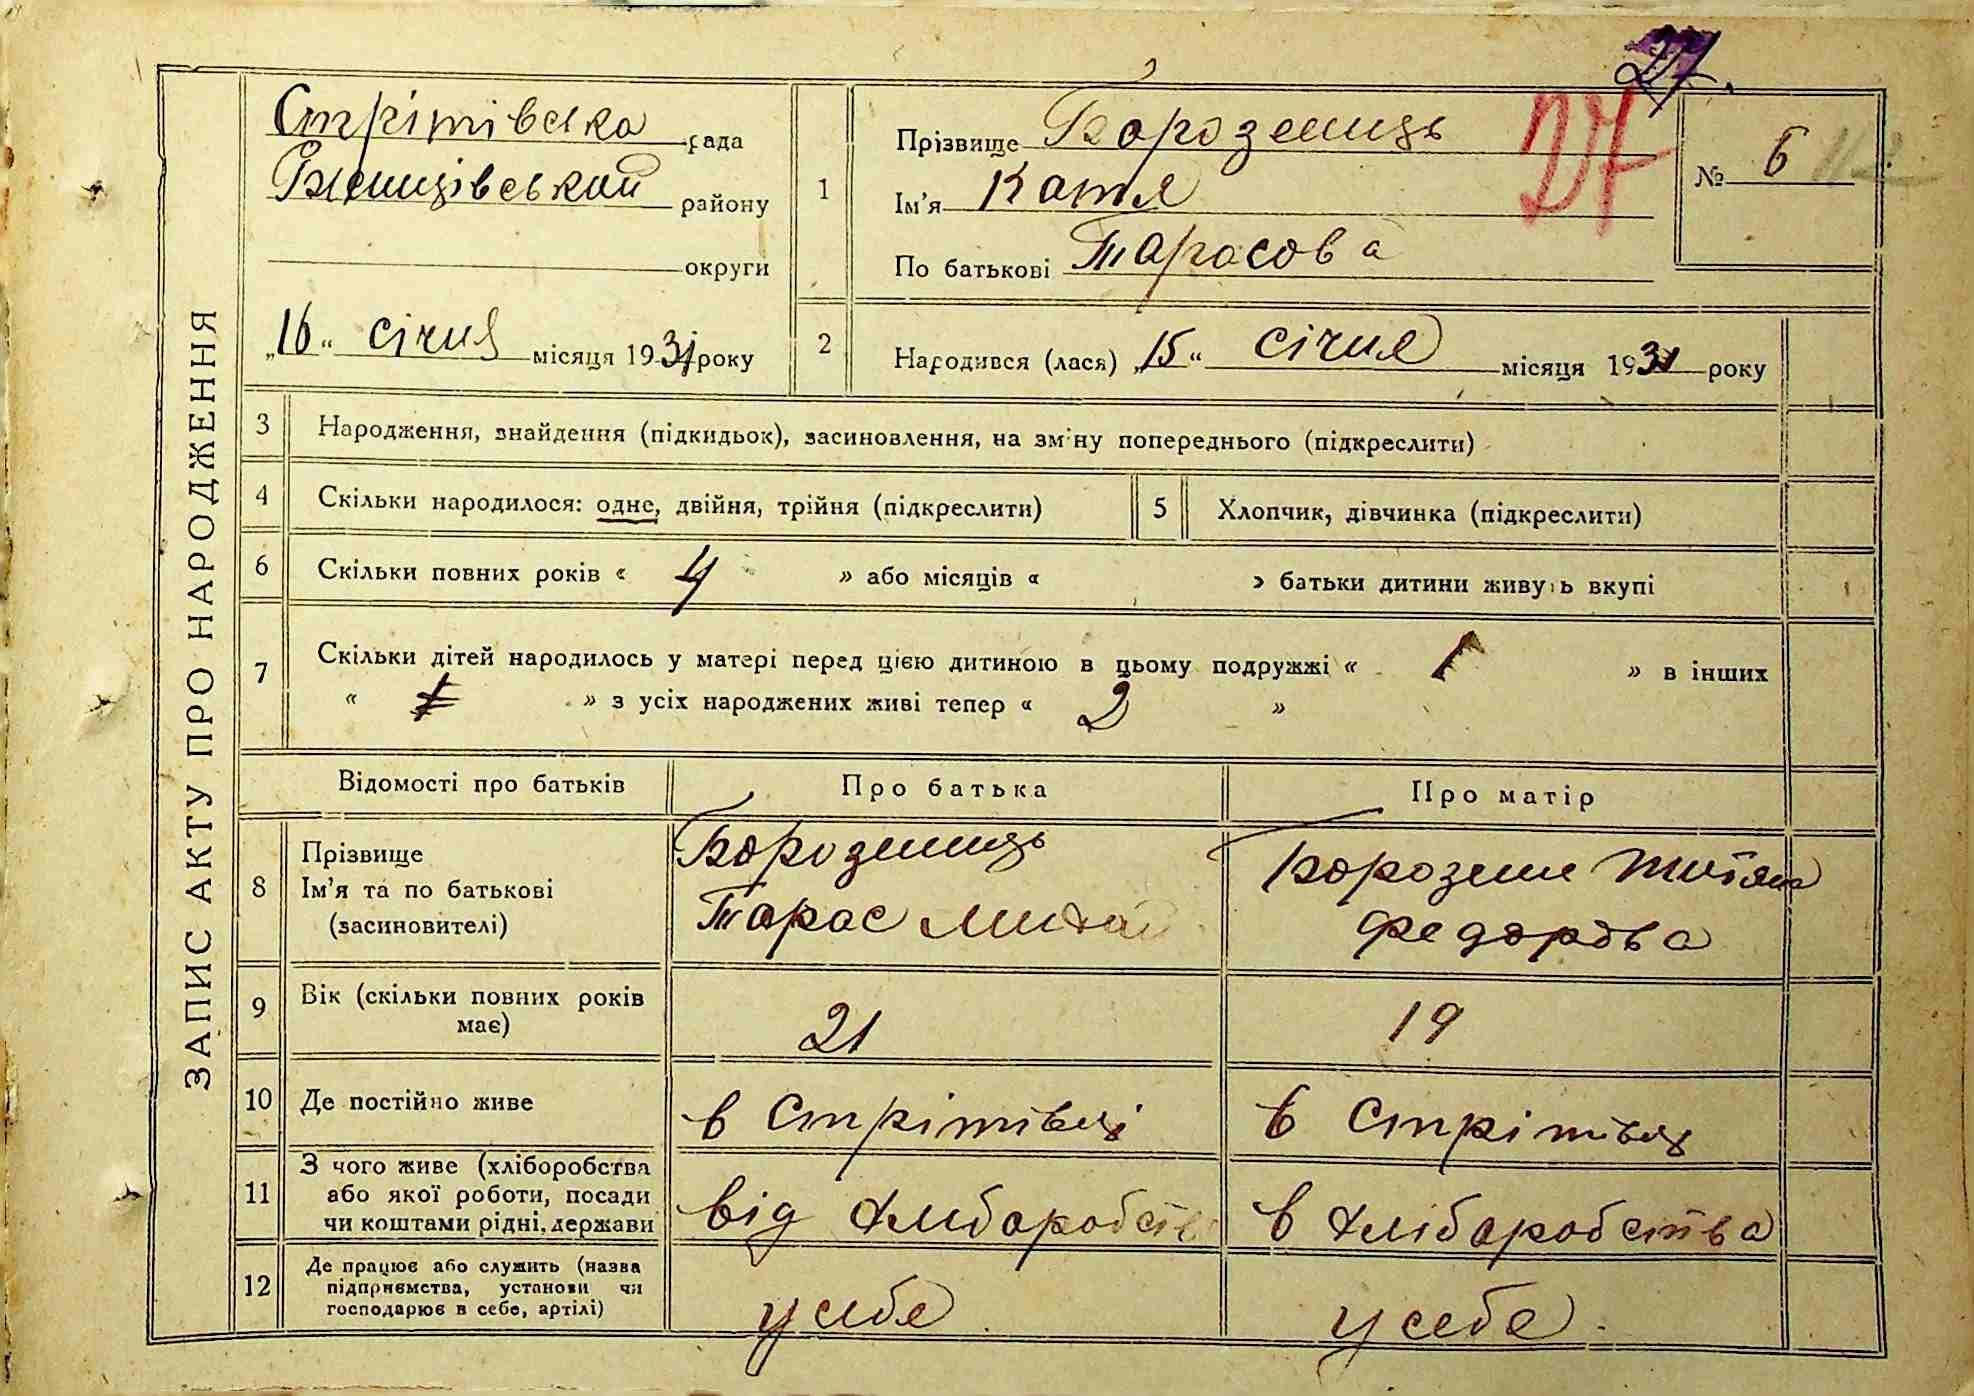 ЗАПИС АКТУ ПРО НАРОДЖЕННЯ
27
27
Стрітівська рада
Ржищівський району
округи
„16“ січня місяця 1931 року
1
Прізвище Бороземиць
Ім'я Катя
По батькові Тарасова
№ 6 112
2
Народився (лася) „15“ січня місяця 1931 року
3 Народження, знайдення (підкидьок), засиновлення, на зміну попереднього (підкреслити)
4 Скільки народилося: одне, двійня, трійня (підкреслити)
5 Хлопчик, дівчинка (підкреслити)
6 Скільки повних років « 4 » або місяців « » батьки дитини живуть вкупі
7 Скільки дітей народилось у матері перед цією дитиною в цьому подружжі « 1 » в інших
« » з усіх народжених живі тепер « 2 »
Відомості про батьків
Про батька
Про матір
8
Прізвище
Ім'я та по батькові
(засиновителі)
Бороземиць
Тарас Михай
Федорова
9
Вік (скільки повних років
має)
21
19
10 Де постійно живе
в Стрітівці
в Стрітівці
11
З чого живе (хліборобства
або якої роботи, посади
чи коштами рідні, держави
від хліборобств
в хліборобства
12
Де працює або служить (назва
підприємства, установи чи
господарює в себе, артілі)
у себе
у себе.